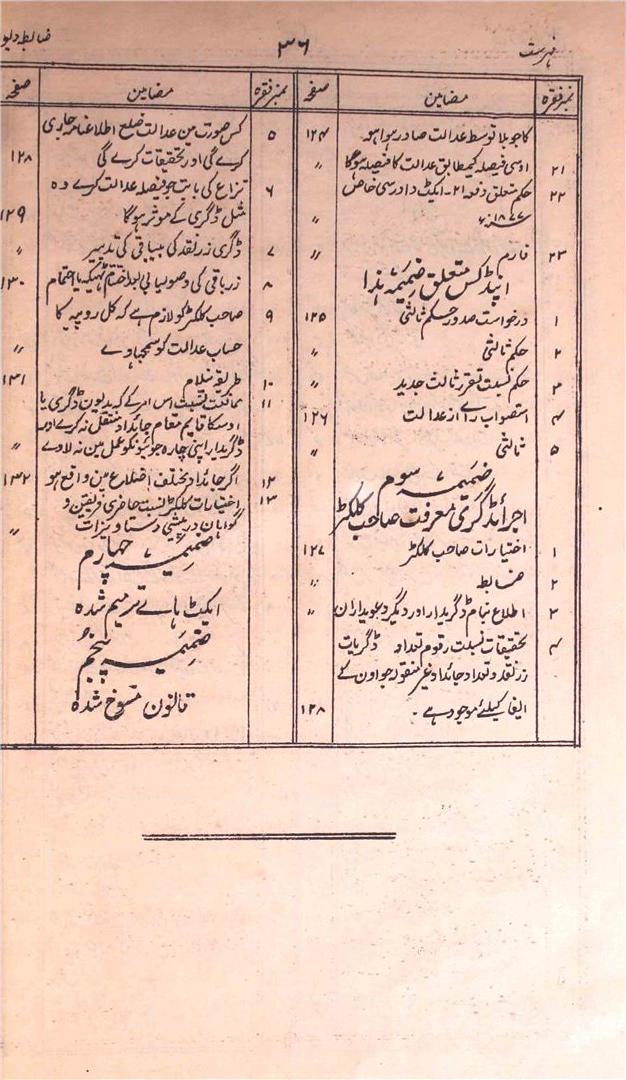 فہرست
۳۶
ضابطہ دیو
نمبر فقرہ مضامین صفحہ
کا جو بلا توسط عدالت صادر ہوا ہو ۱۲۴
۲۱ اوسی فیصلہ کیمطابق عدالت کا فیصلہ ہوگا 〃
۲۲ حکم متعلق دفعہ ۲۱ - ایکٹ دادرسی خاص
۱۸۷۷ء 〃
۲۳ فارم 〃
اپنڈکس متعلق ضمیمہ ہذا
۱ درخواست صدور حکم ثالثی ۱۲۵
۲ حکم ثالثی 〃
۳ حکم نسبت تقرر ثالث جدید 〃
۴ استصواب رائے از عدالت ۱۲۶
۵ ثالثی 〃
ضمیمہ سوم
اجرائے ڈگری معرفت صاحب کلکٹر
۱ اختیارات صاحب کلکٹر ۱۲۷
۲ ضابطہ 〃
۳ اطلاع بنام ڈگریدار اور دیگر دعویداران 〃
۴ تحقیقات نسبت رقوم تعداد ڈگریات
زر نقد و تعداد جائداد غیر منقولہ جو اون کے
ایفا کیلئے موجود ہے - ۱۲۸
نمبر فقرہ مضامین صفحہ
۵ کس صورت مین عدالت ضلع اطلاعنامہ جاری
کرے گی اور تحقیقات کرے گی ۱۲۸
۶ نزاع کی بابت جو فیصلہ عدالت کرے وہ
مثل ڈگری کے موثر ہوگا ۱۲۹
۷ ڈگری زر نقد کی بیباقی کی تدبیر 〃
۸ زر باقی کی وصولیابی بعد اختتام ٹھیکہ یا اہتمام ۱۳۰
۹ صاحب کلکٹر کو لازم ہے کہ کل روپیہ کا
حساب عدالت کو سمجھاوے 〃
۱۰ طریقہ نیلام ۱۳۱
۱۱ ممانعت نسبت اس امر کے کہ مدیون ڈگری یا
اوسکا قایم مقام جائداد منتقل نہ کرے اور
ڈگریدار اپنی چارہ جوئیونکو عمل مین نہ لاوے 〃
۱۲ اگر جائداد مختلف اضلاع مین واقع ہو ۱۳۲
۱۳ اختیارات کلکٹر نسبت حاضری فریقین و
گواہان در پیشی دستاویزات 〃
ضمیمہ چہارم
ایکٹ ہائے ترمیم شدہ
ضمیمہ پنجم
قانون منسوخ شدہ